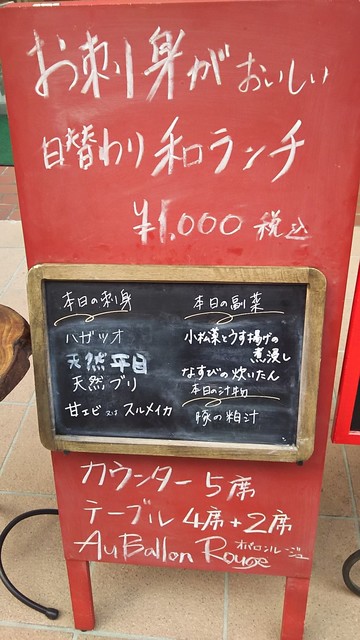 お刺身がおいしい
日替わり和ランチ
¥1,000 税込
本日の刺身
ハガツオ
天然平目
天然ブリ
甘エビ又はスルメイカ
本日の副菜
小松菜とうす揚げの
煮浸し
なすびの炊いたん
本日の汁物
豚の粕汁
カウンター5席
テーブル4席+2席
Au Ballon Rouge オバロンルージュ